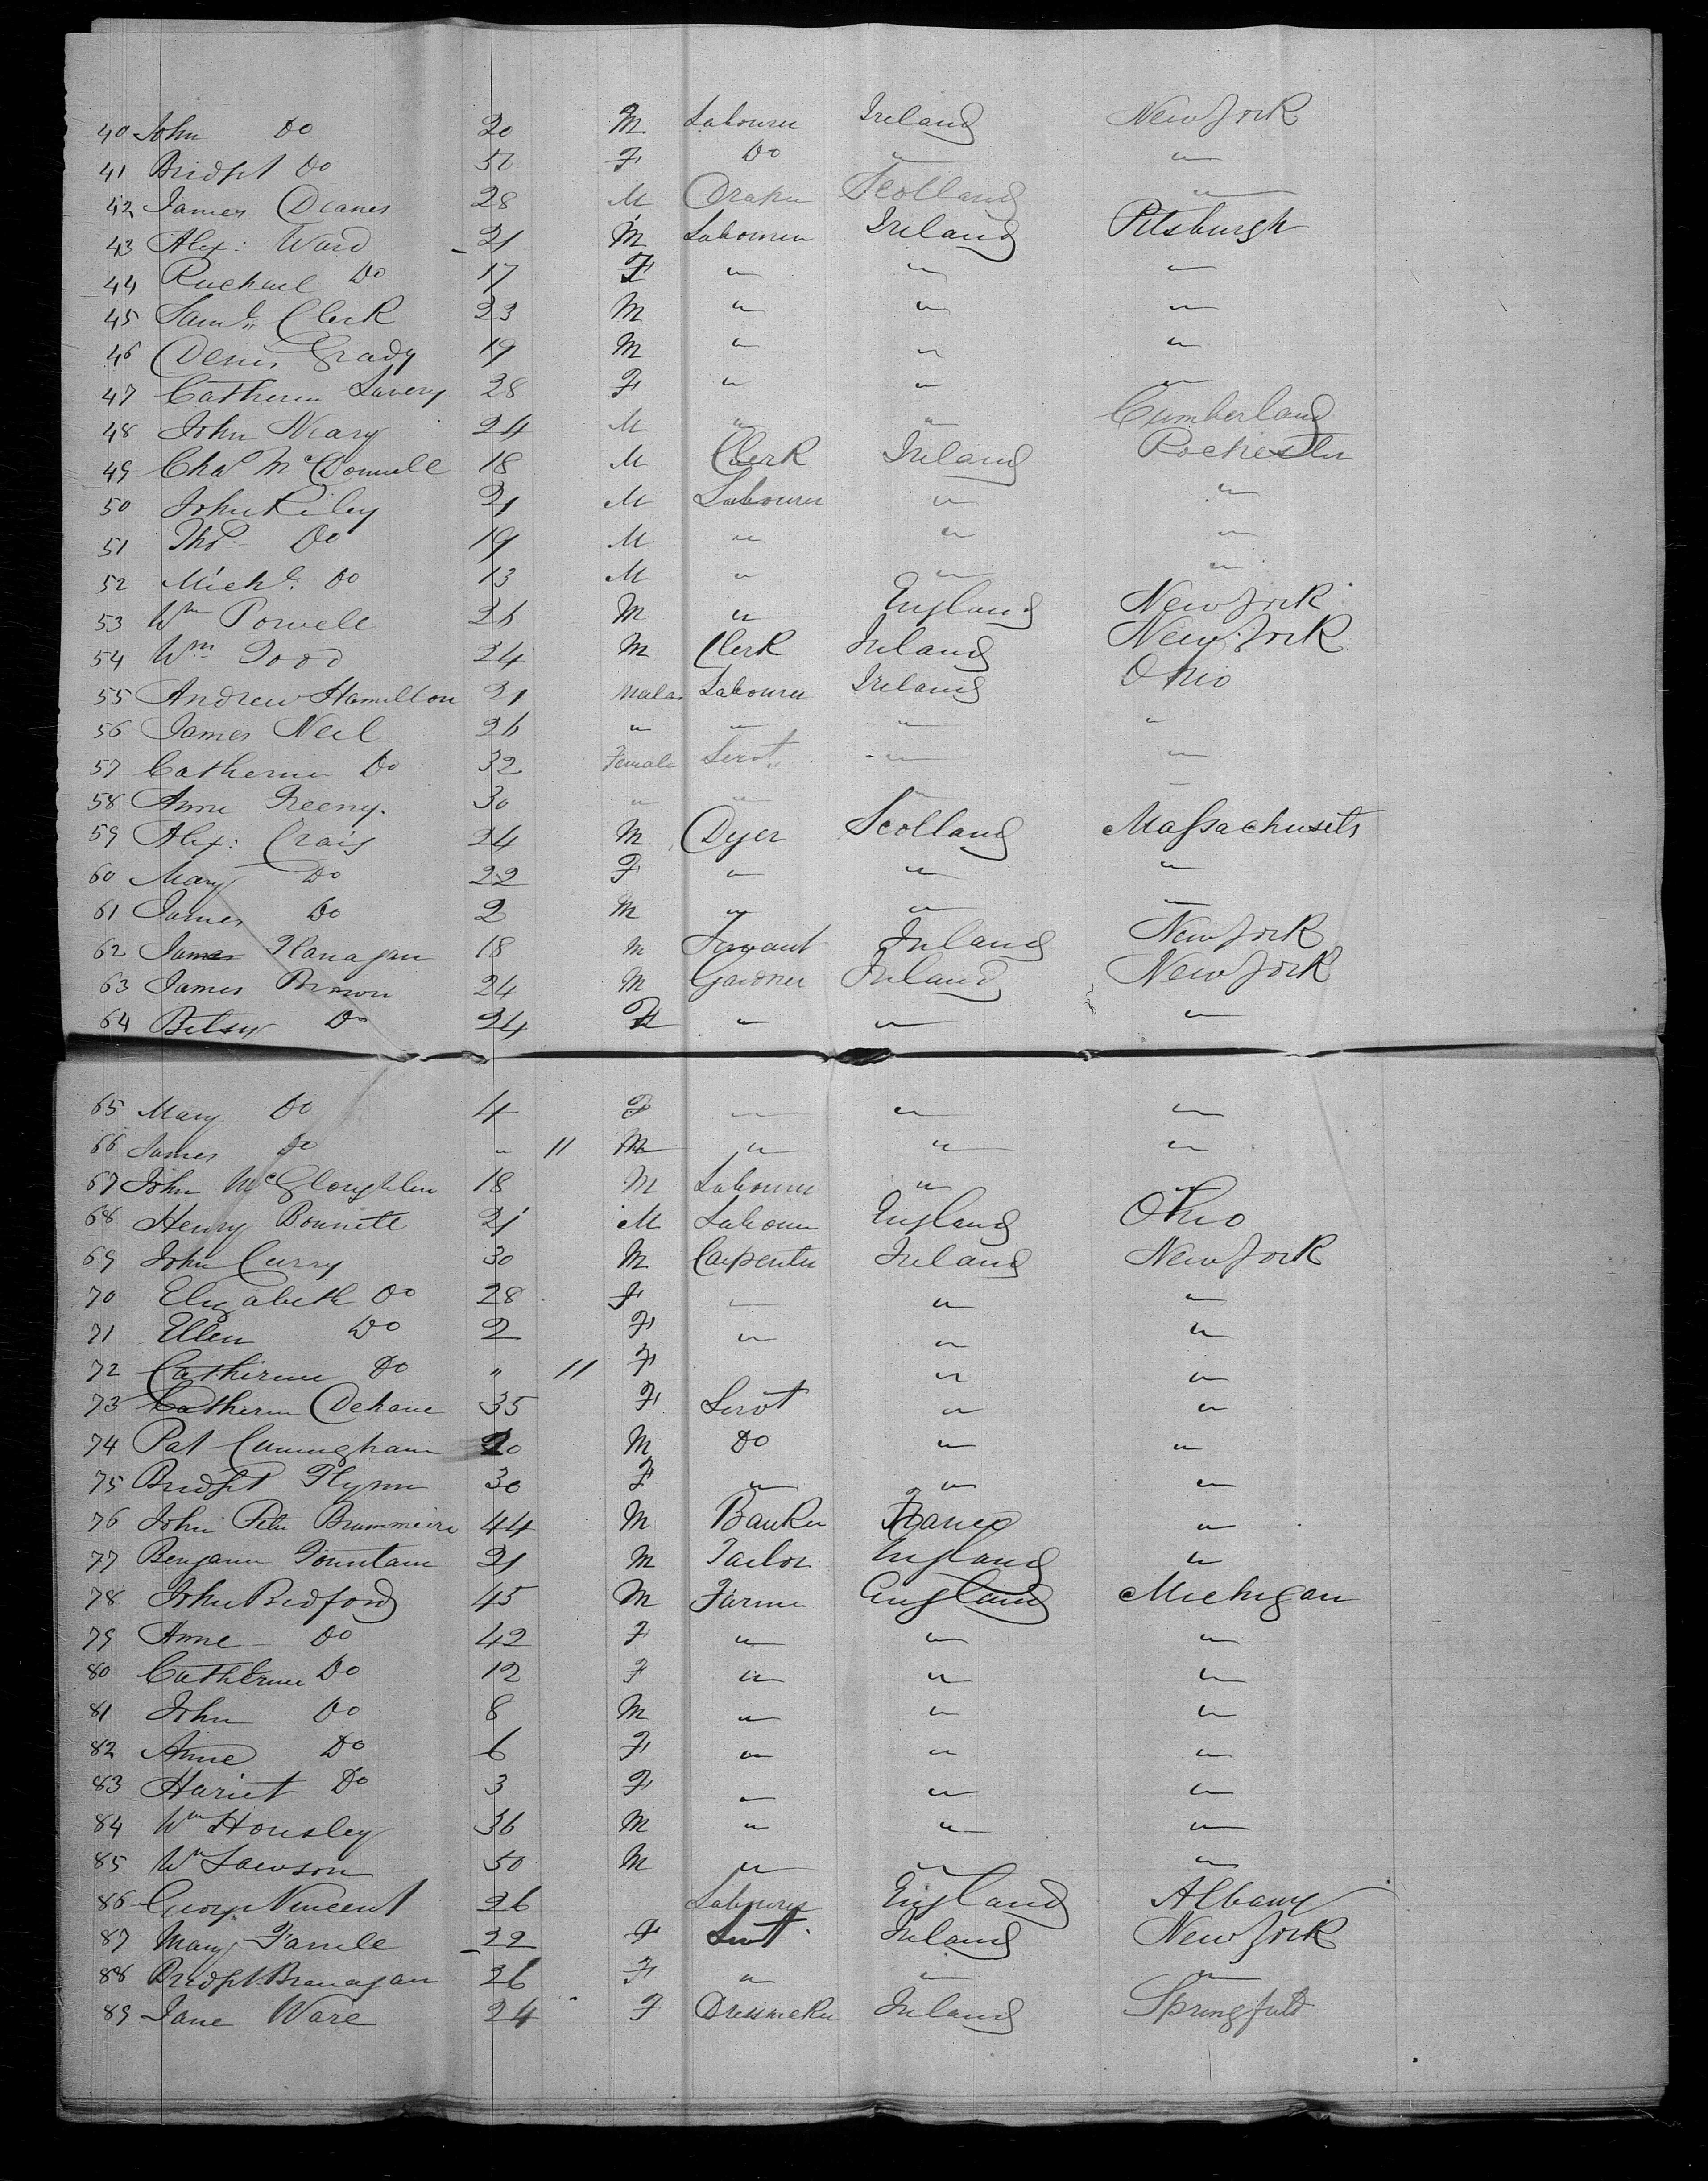 40 John Do 20 M Labourer Ireland New York
41 Bridgt Do 50 F Do " "
42 James Deanes 28 M Draper Scotland "
43 Alex: Ward 21 M Labourer Ireland Pitsburgh
44 Rachael Do 17 F " " "
45 Saml. Clerk 23 M " " "
46 Denis Grady 19 M " " "
47 Catherine Lavery 28 F " " "
48 John Neary 24 M " " Cumberland
49 Chas McDonnell 18 M Clerk Ireland Rochester
50 John Riley 21 M Labourer " "
51 Thos Do 19 M " " "
52 Michl. Do 13 M " " "
53 Wm Powell 26 M " England New York
54 Wm Todd 24 M Clerk Ireland New York
55 Andrew Hamilton 31 Male Labourer Ireland Ohio
56 James Neil 26 " " " "
57 Catherine Do 32 Female Servt " "
58 Anne Freeny. 30 " " " "
59 Alex: Craig 24 M Dyer Scotland Massachusets
60 Mary Do 22 F " " "
61 James Do 2 M " " "
62 James Flanagan 18 M Servant Ireland New York
63 James Brown 24 M Gardner Ireland New York
64 Betsy Do 24 F " " "
65 Mary Do 4 F " " "
66 James Do " 11 M " " "
67 John McGloughlin 18 M Labourer " "
68 Henry Bonnett 21 M Labourer England Ohio
69 John Curry 30 M Carpenter Ireland New York
70 Elizabeth Do 28 F " " "
71 Ellen Do 2 F " " "
72 Catherine Do " 11 F " "
73 Catherine Dehane 35 F Servt " "
74 Pat Cuningham 20 M Do " "
75 Bridgt Flynn 30 F " " "
76 John Peter Brummeire 44 M Banker France "
77 Benjamin Fountain 21 M Tailor England "
78 John Bedford 45 M Farmer England Michigan
79 Anne Do 42 F " " "
80 Catherine Do 12 F " " "
81 John Do 8 M " " "
82 Anne Do 6 F " " "
83 Hariet Do 3 F " " "
84 Wm Housley 36 M " " "
85 Wm Lawson 50 M " " "
86 George Vincent 26 Labourer England Albany
87 Mary Farrell 22 F Servt Ireland New York
88 Bridgt Branagan 26 F " " "
89 Jane Ware 24 F Dressmaker Ireland Springfield